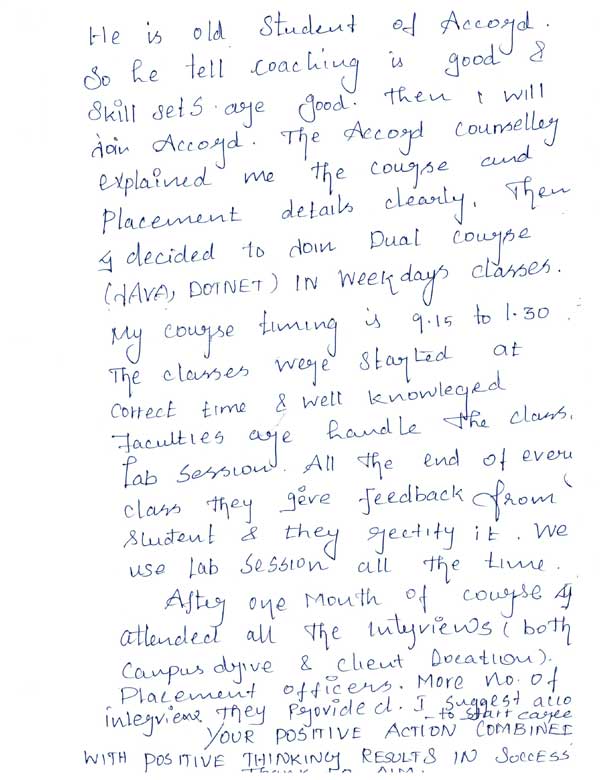 He is old Student of Accord.
So he tell coaching is good &
Skill sets are good. then i will
join Accord. The Accord Counseller
explained me the course and
Placement details clearly. Then
I decided to Join Dual course
(JAVA, DOTNET) IN Weekdays classes.
My course timing is 9.15 to 1.30.
The classes were started at
correct time & well knowleged
Faculties are handle the class.
Lab Session. All the end of every
class they give feedback from
Student & they rectify it. We
use lab session all the time.
After one Month of course I
attended all the Interviews (both
Campus drive & Client Location).
Placement officers. More no. of
interviews they Provided. I suggest
to start caree
YOUR POSITIVE ACTION COMBINED
WITH POSITIVE THINKING RESULTS IN SUCCESS